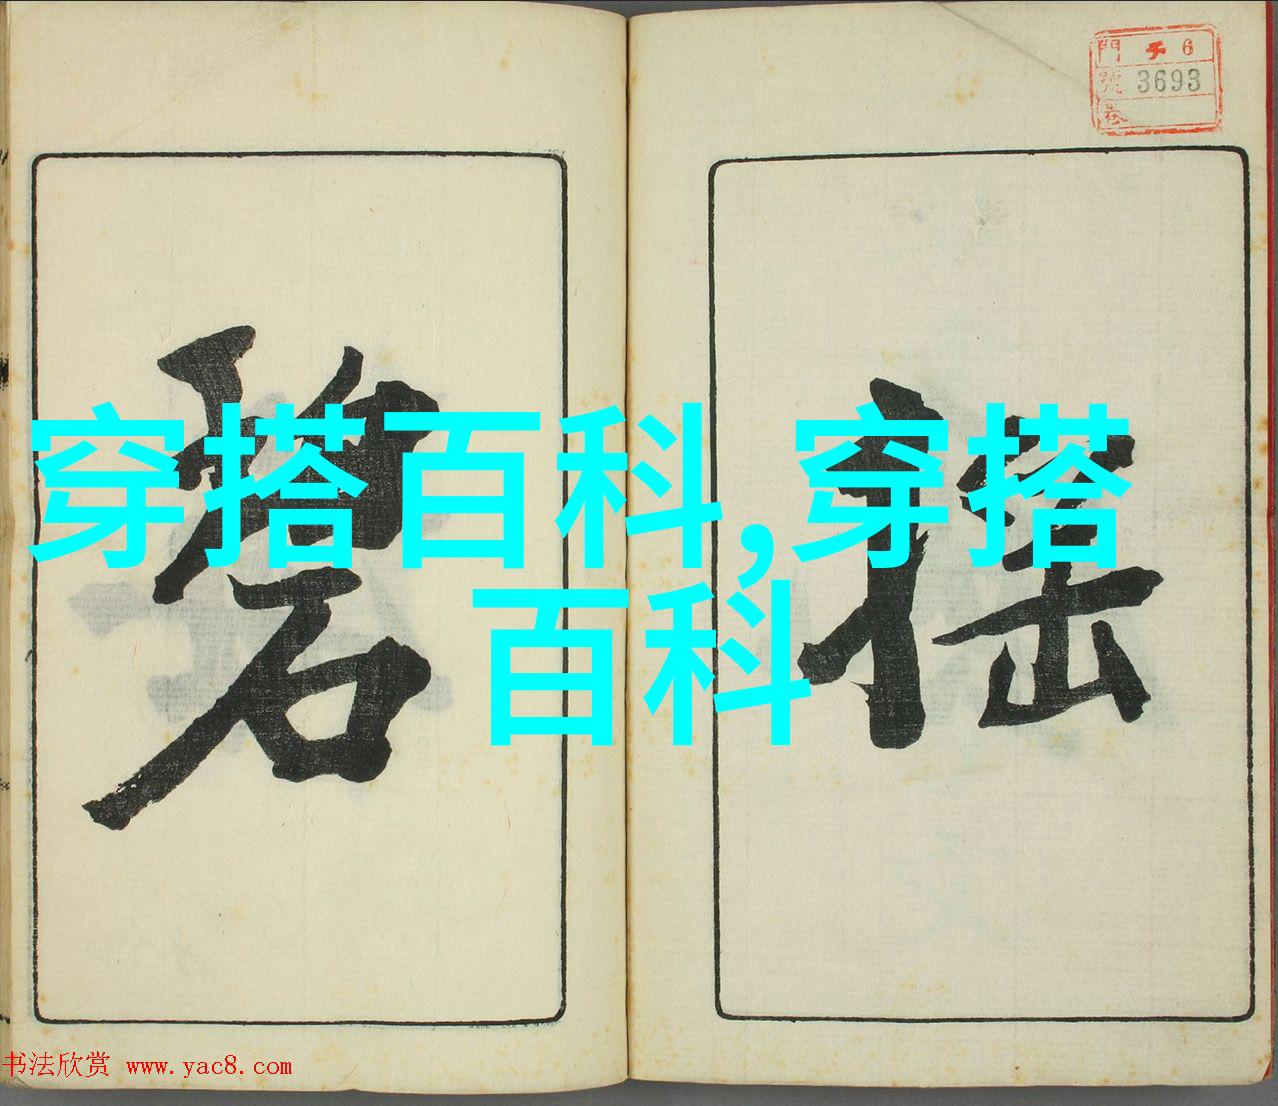 門 チ 6
號 3693
巻
碧
穿搭百科,穿搭
百科
书法欣赏 www.yac8.com